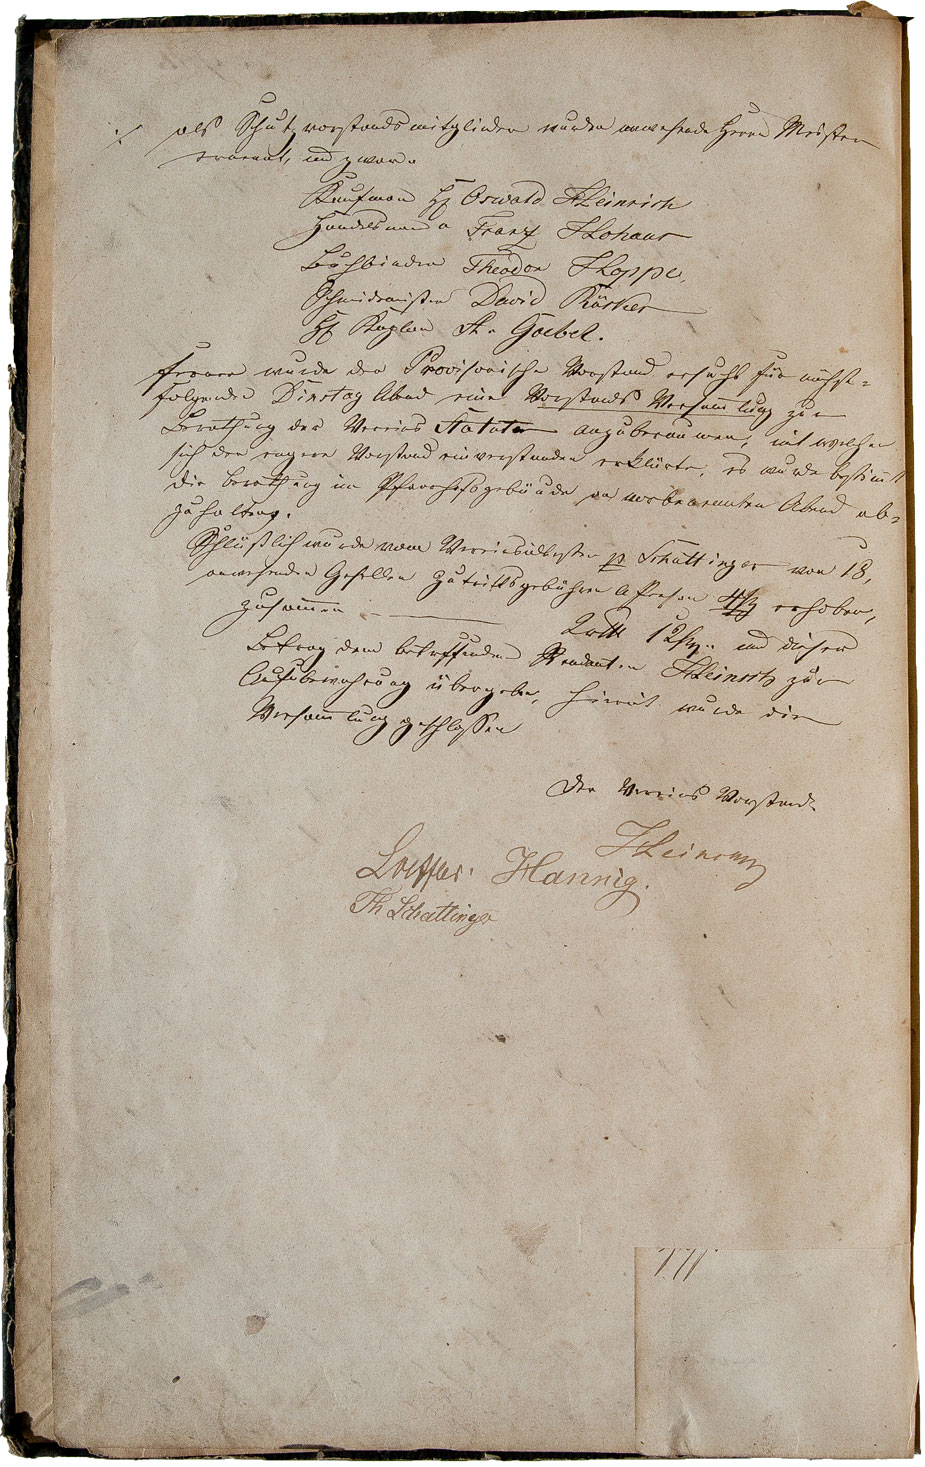 als Schutzvorstandsmitglieder wurden anwesende Herrn Meister
ernannt, und zwar.
Kaufman H Oswald Heinrich
Handelsmann Franz Hohaus
Buchbinder Theodor Hoppe,
Schmidemeister David
H Kaplan A. Goebel.
ferner wurde der Provisorische Vorstand ersucht für nächst=
folgenden Dinstag Abend eine Vorstands Versammlung zur
Berathung der Vereins Statuten anzuberaumen, mit welcher
sich der engere Vorstand einverstanden erklärte, es wurde bestimmt
die Berathung im Pfarrhofsgebäude an vorbenannten Abend ab=
zuhalten.
Schlüßlich wurde vom Vereinsältesten pp Schattinger von 18,
anwesenden Gesellen Zutrittsgebühren a Person 4 erhoben,
zusammen 2 12 und dieser
Betrag dem betreffenden Rendanten Heinrich zur
Aufbewahrung übergeben, hiermit wurde die
Versammlung geschlossen
Der Vereins Vorstand.
Heinrich
Hannig.
Th Schattinger